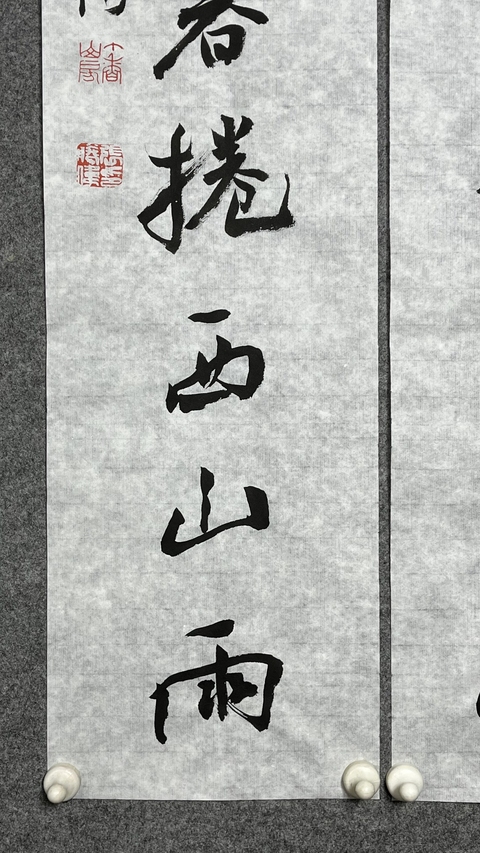 暮捲西山雨